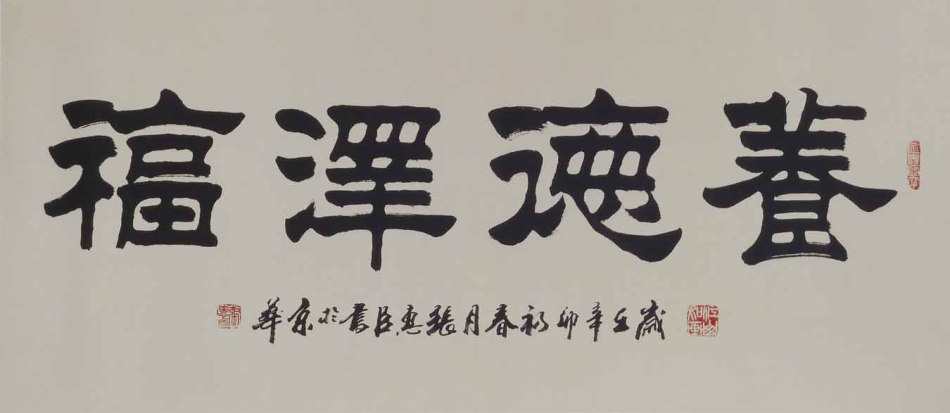 養德澤福
歲在辛卯初春月張惠臣書於京華